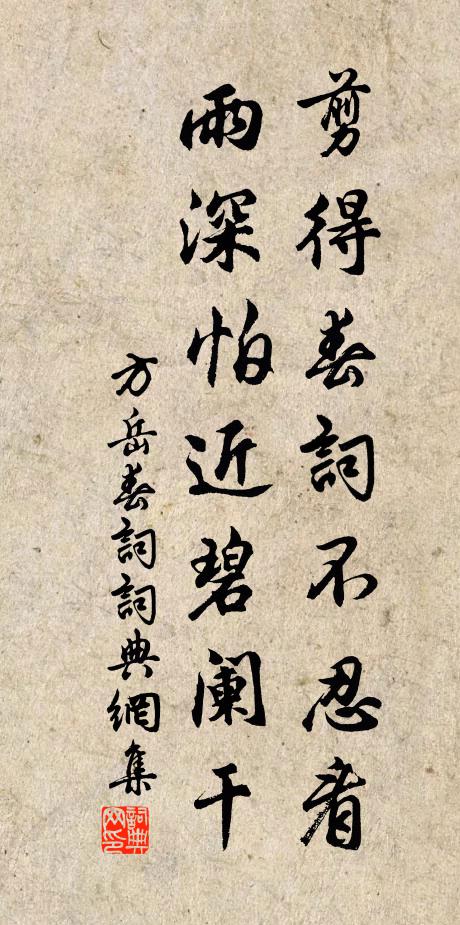 剪得春詞不忍看
雨深怕近碧闌干
方岳春詞詞典網集
詞典
网印